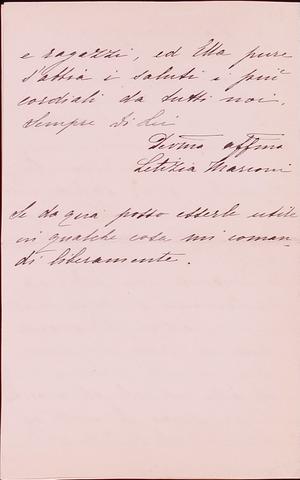 e ragazzi, ed Ella pure
s'abbia i saluti i più
cordiali da tutti noi.
Sempre di Lei
Devma affma
Letizia Marconi
Se da qua posso esserle utile
in qualche cosa mi coman-
di liberamente.